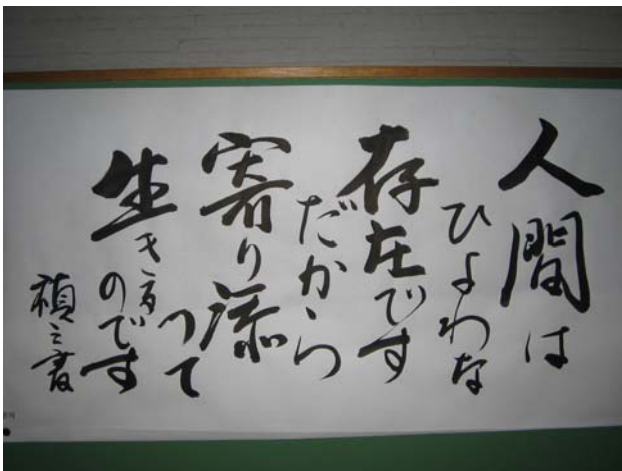 人間は
ひよわな
存在です
だから
寄り添
って
生きる
のです
禎之書